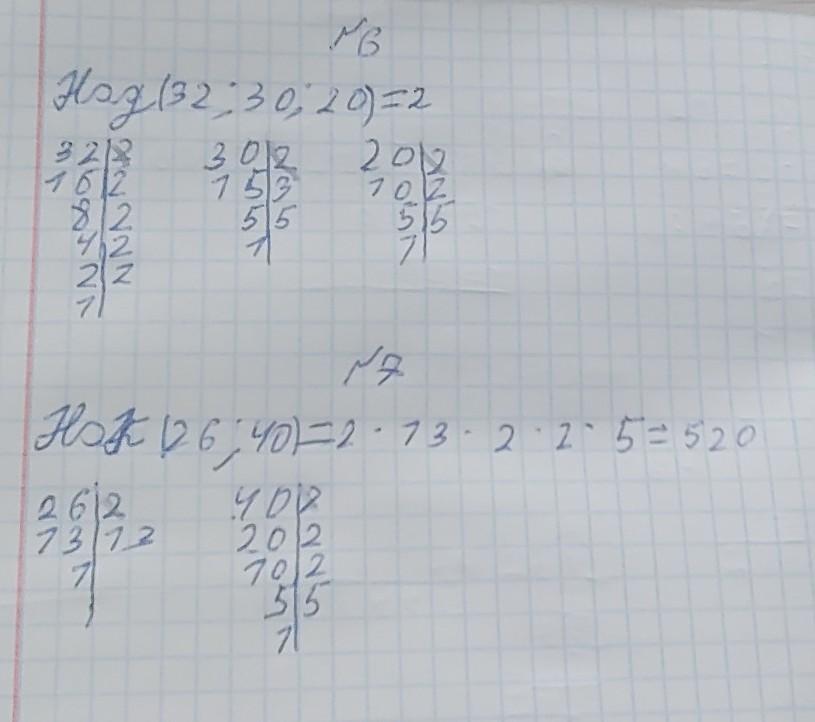 №6
Нод(32; 30; 20)=2
32|2 30|2 20|2
16|2 15|3 10|2
8|2 5|5 5|5
4|2 1| 1|
2|2
1|
№7
Нок(26; 40)=2·13·2·2·5=520
26|2 40|2
13|13 20|2
1| 10|2
5|5
1|